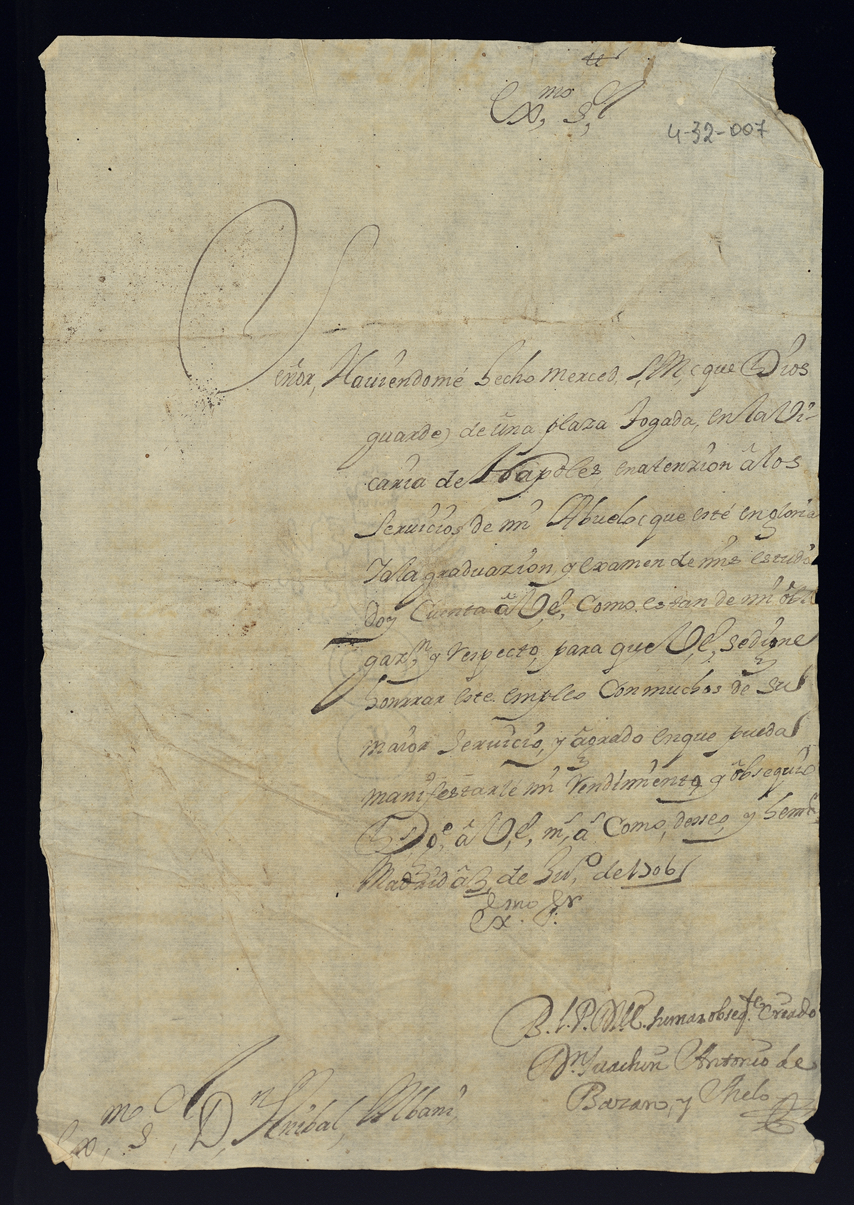 Exmo, S,r
4-32-007
Señor, Hauiendome hecho merced, S,M,(que Dios
guarde) de una plaza Togada, en la Vi-
caria de Napoles en atenzion â los
Seruicios de mi Abuelo (que esté en gloria
Y a la graduazion, y examen de mis estudio
doy Cuenta â V,e, Como, es tan de mi obli
gazn, y respecto, para que V,e, se digne
honrrar este empleo Con muchos de su
maior Seruicio, y âgrado en que pueda
manifestarle mi rendimiento, y obsequio
Dos, â V,e, ms, as Como, deseo, y
Madrid â 3, de Ju,o de 1706
Exmo. Sr.
B.l.P.D.V.E. su mas obseqte. Criado
Dn. Juachin Antonio de
Bazan, y Melo
Exmo, S,r, Dn Anibal, Albani,